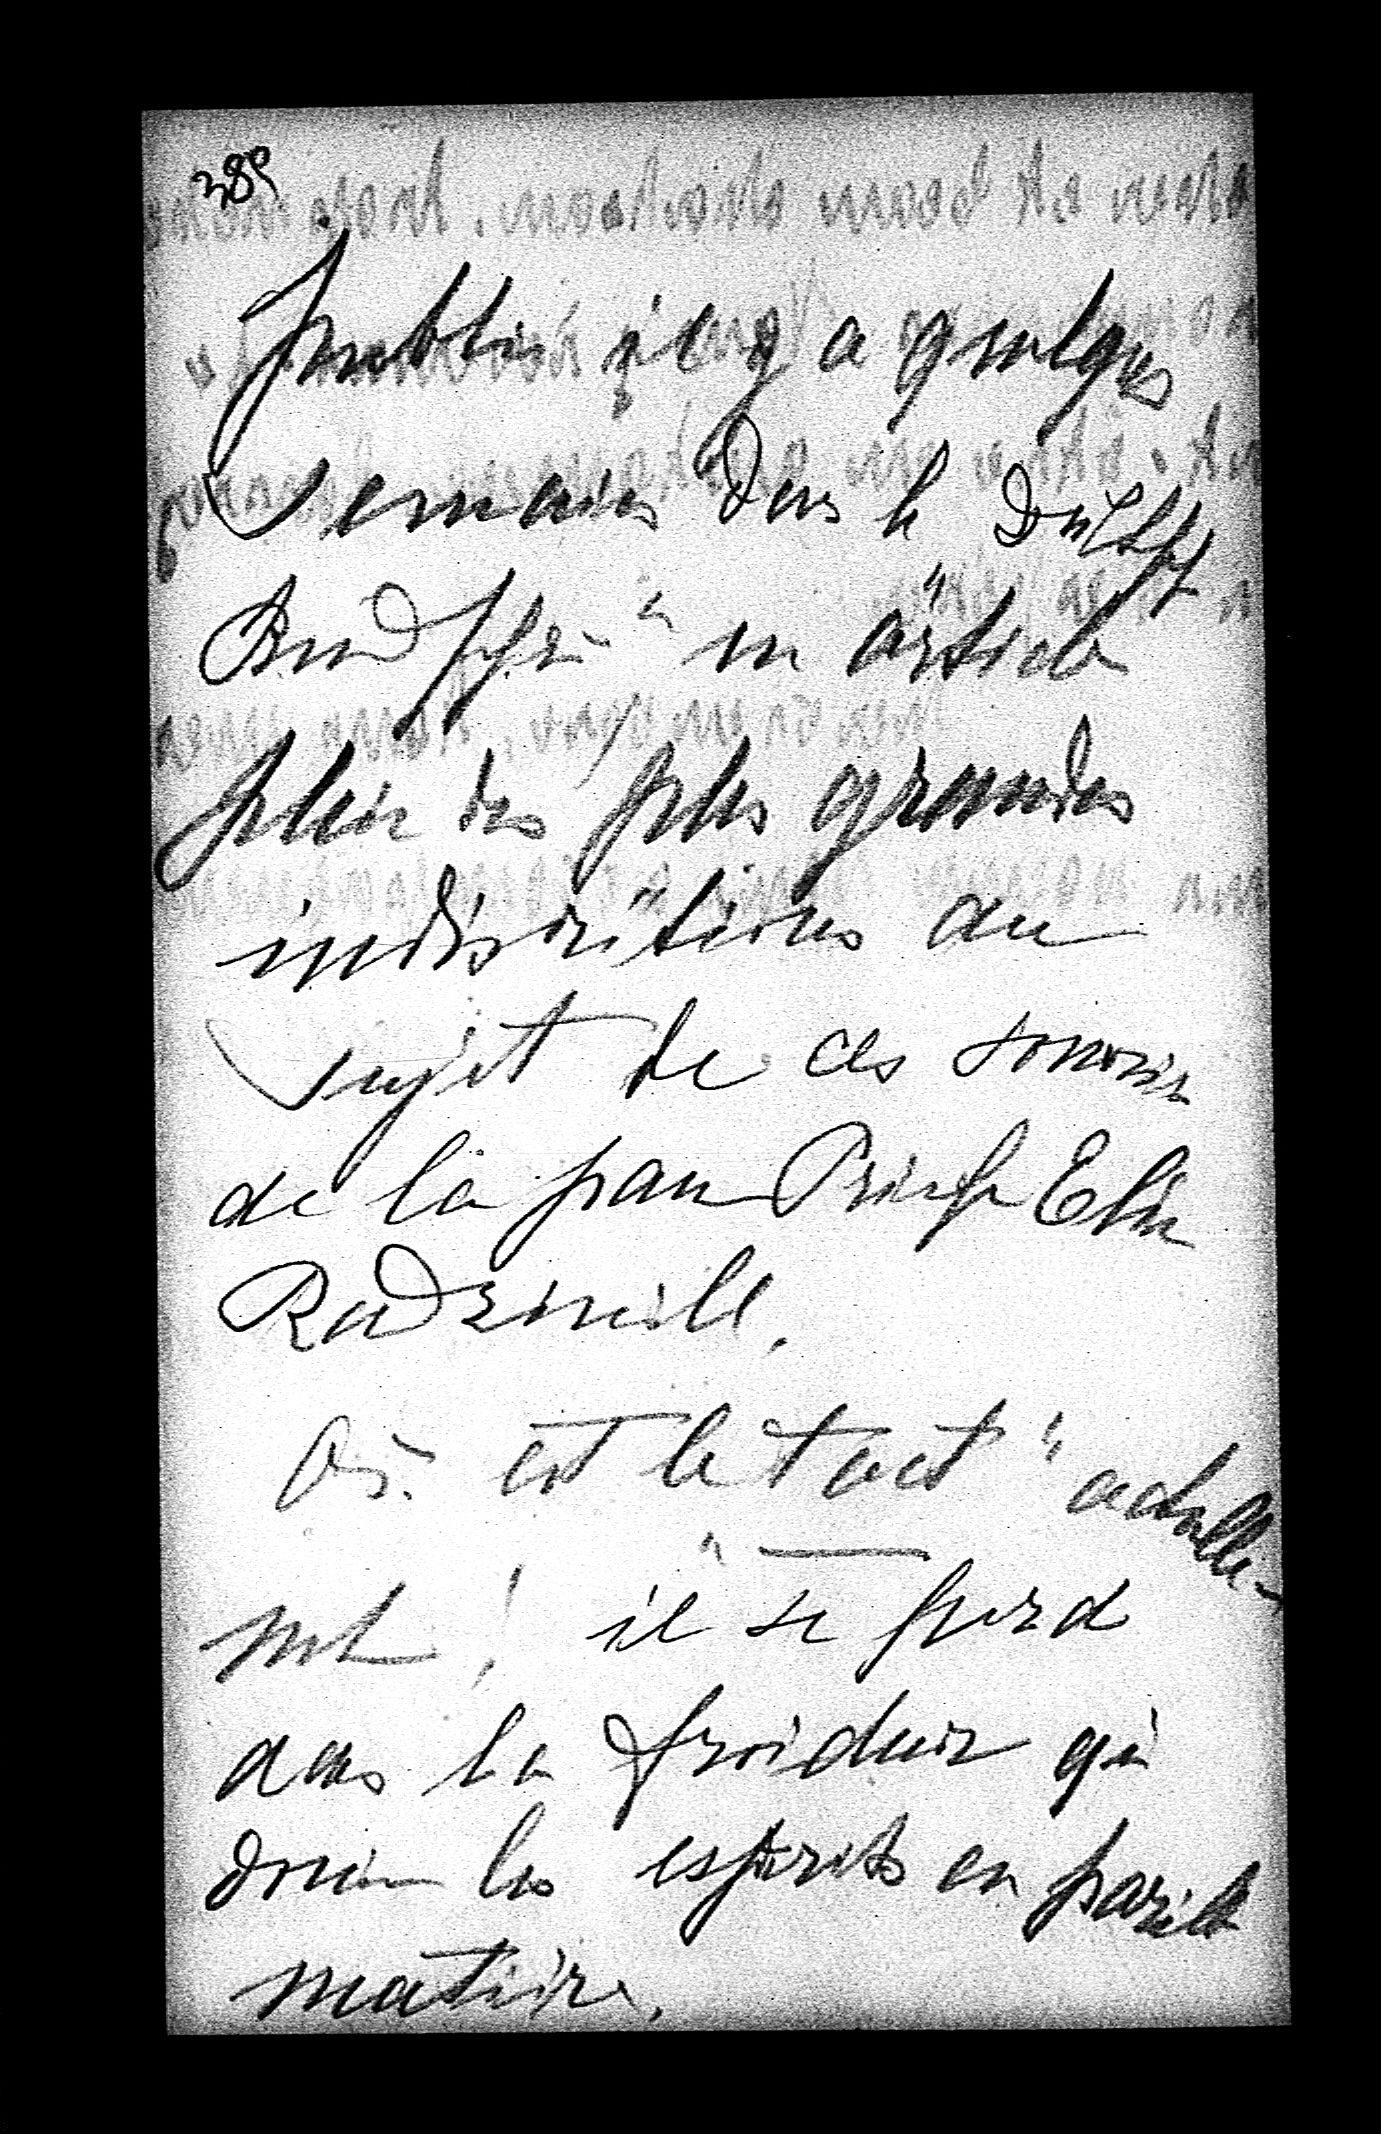 389
publié il y a quelques
semaines dans le Dtsch
Rundschau " un article
plein des plus grandes
indiscrétions au
sujet de ces souvenirs
de la pauvre Princesse Elise
Radziwill.
Où est le tact "
! il se perd
dans la froideur qui
les esprits en pareille
matière.